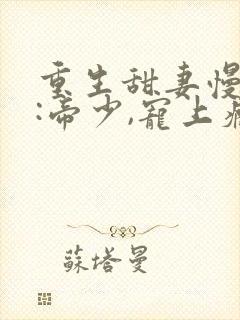 重生甜妻慢
:帝少,寵上
蘇塔曼